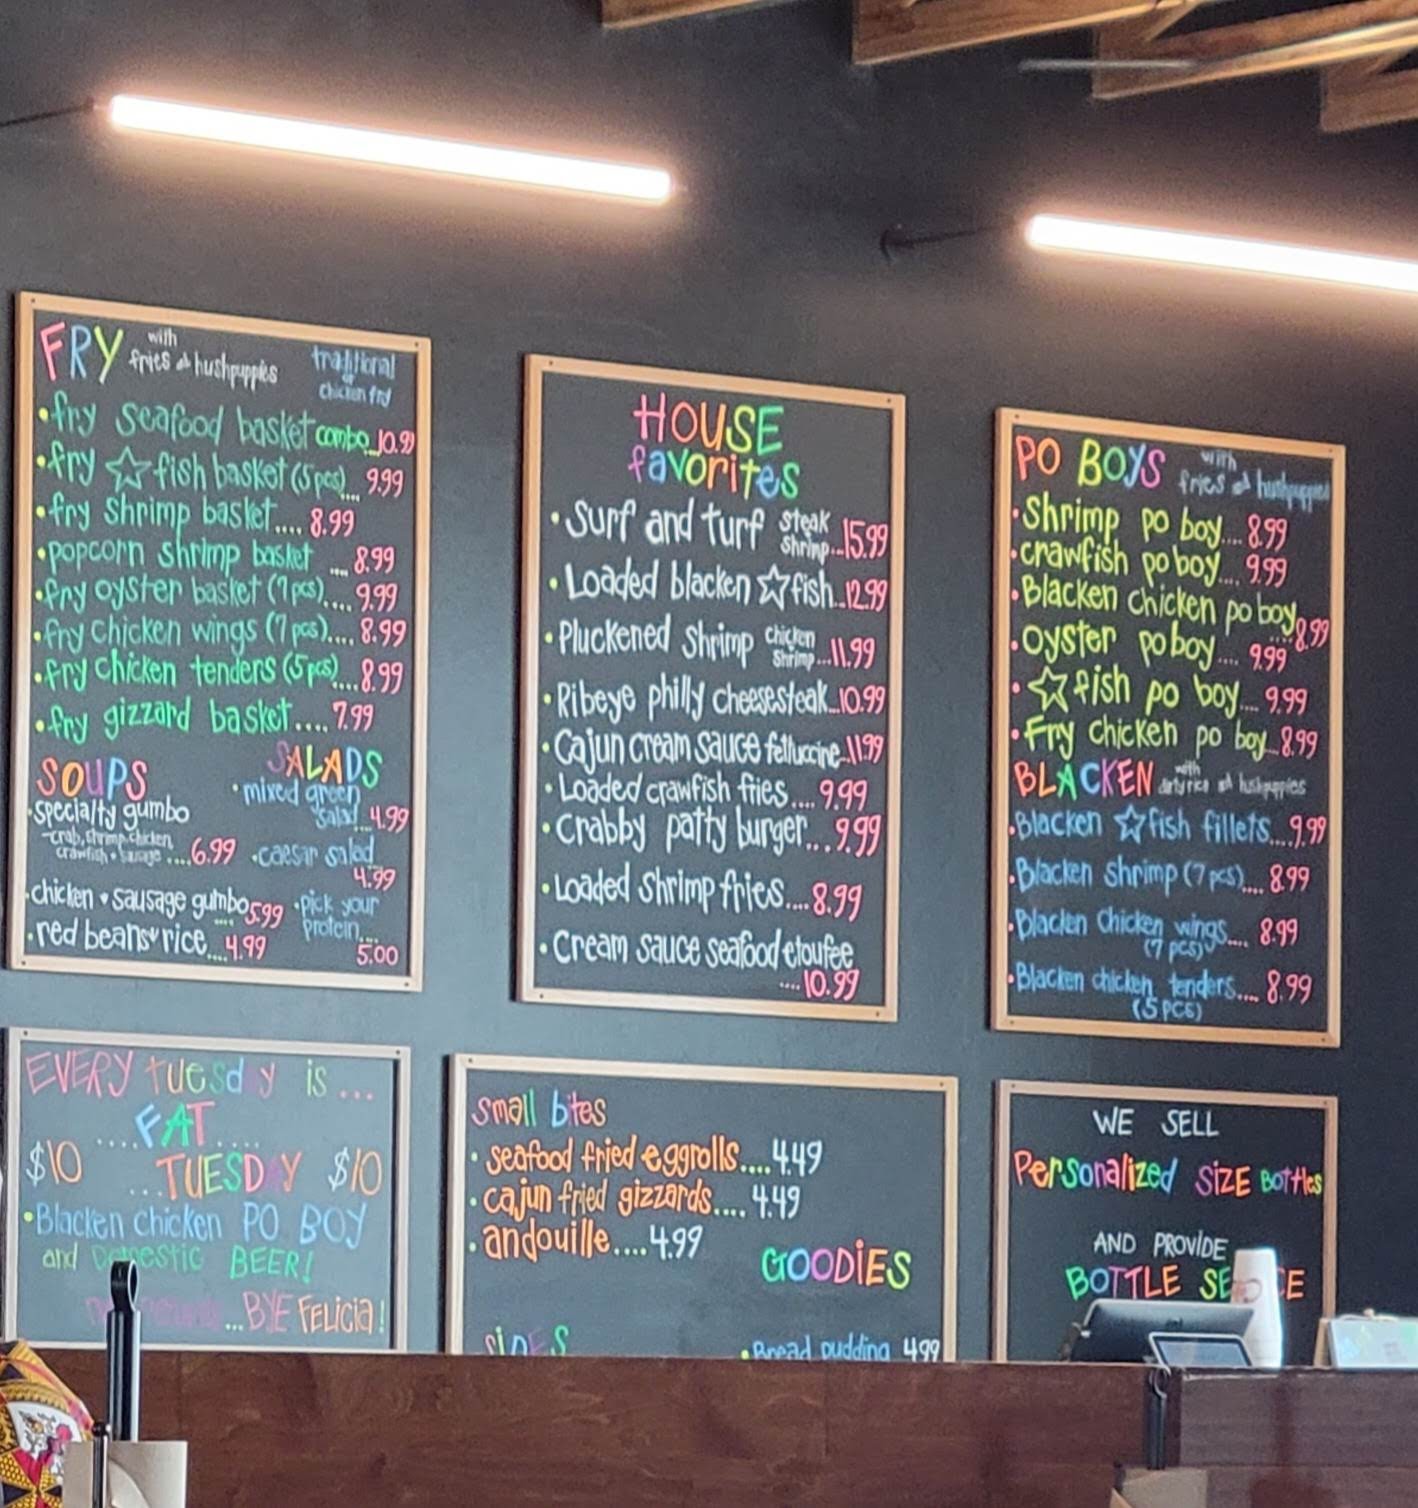 FRY with fries and hushpuppies
traditional
or
chicken fry
•fry seafood basket combo..10.99
•fry ☆fish basket (5pcs)... 9.99
•fry shrimp basket.... 8.99
•popcorn shrimp basket .... 8.99
•fry oyster basket (7pcs).... 9.99
•fry chicken wings (7pcs).... 8.99
•fry chicken tenders (5pcs)....8.99
•fry gizzard basket.... 7.99
SOUPS
•specialty gumbo
-crab, shrimp, chicken,
crawfish + sausage ....6.99
•chicken + sausage gumbo 5.99
....
•red beans + rice....4.99
SALADS
•mixed green
salad...4.99
•caesar salad
4.99
•pick your
protein....
5.00
HOUSE
favorites
•Surf and turf steak
shrimp...15.99
•Loaded blacken ☆fish..12.99
•Pluckened shrimp chicken
shrimp...11.99
•Ribeye philly cheesesteak..10.99
•Cajun cream sauce fettuccine..11.99
•Loaded crawfish fries.... 9.99
•Crabby patty burger...9.99
•Loaded shrimp fries....8.99
•Cream sauce seafood etoufee
....10.99
PO BOYS with
fries and hushpuppies
•Shrimp po boy.... 8.99
•crawfish po boy... 9.99
•Blacken chicken po boy
....8.99
•oyster po boy.... 9.99
•☆fish po boy.... 9.99
•Fry chicken po boy...8.99
BLACKEN with
dirty rice and hushpuppies
•Blacken ☆fish fillets....9.99
•Blacken shrimp (7pcs).... 8.99
•Blacken chicken wings.... 8.99
(7 pcs)
•Blacken chicken tenders.... 8.99
(5 PCS)
EVERY tuesd y is ...
....FAT....
$10 ...TUESD Y $10
•Blacken chicken PO BOY
and Domestic BEER!
...BYE FELICIA!
small bites
•seafood fried eggrolls....4.49
•cajun fried gizzards.... 4.49
•andouille....4.99
GOODIES
SIDES
•Bread pudding 4.99
WE SELL
Personalized SIZE BOTTles
AND PROVIDE
BOTTLE SE CE